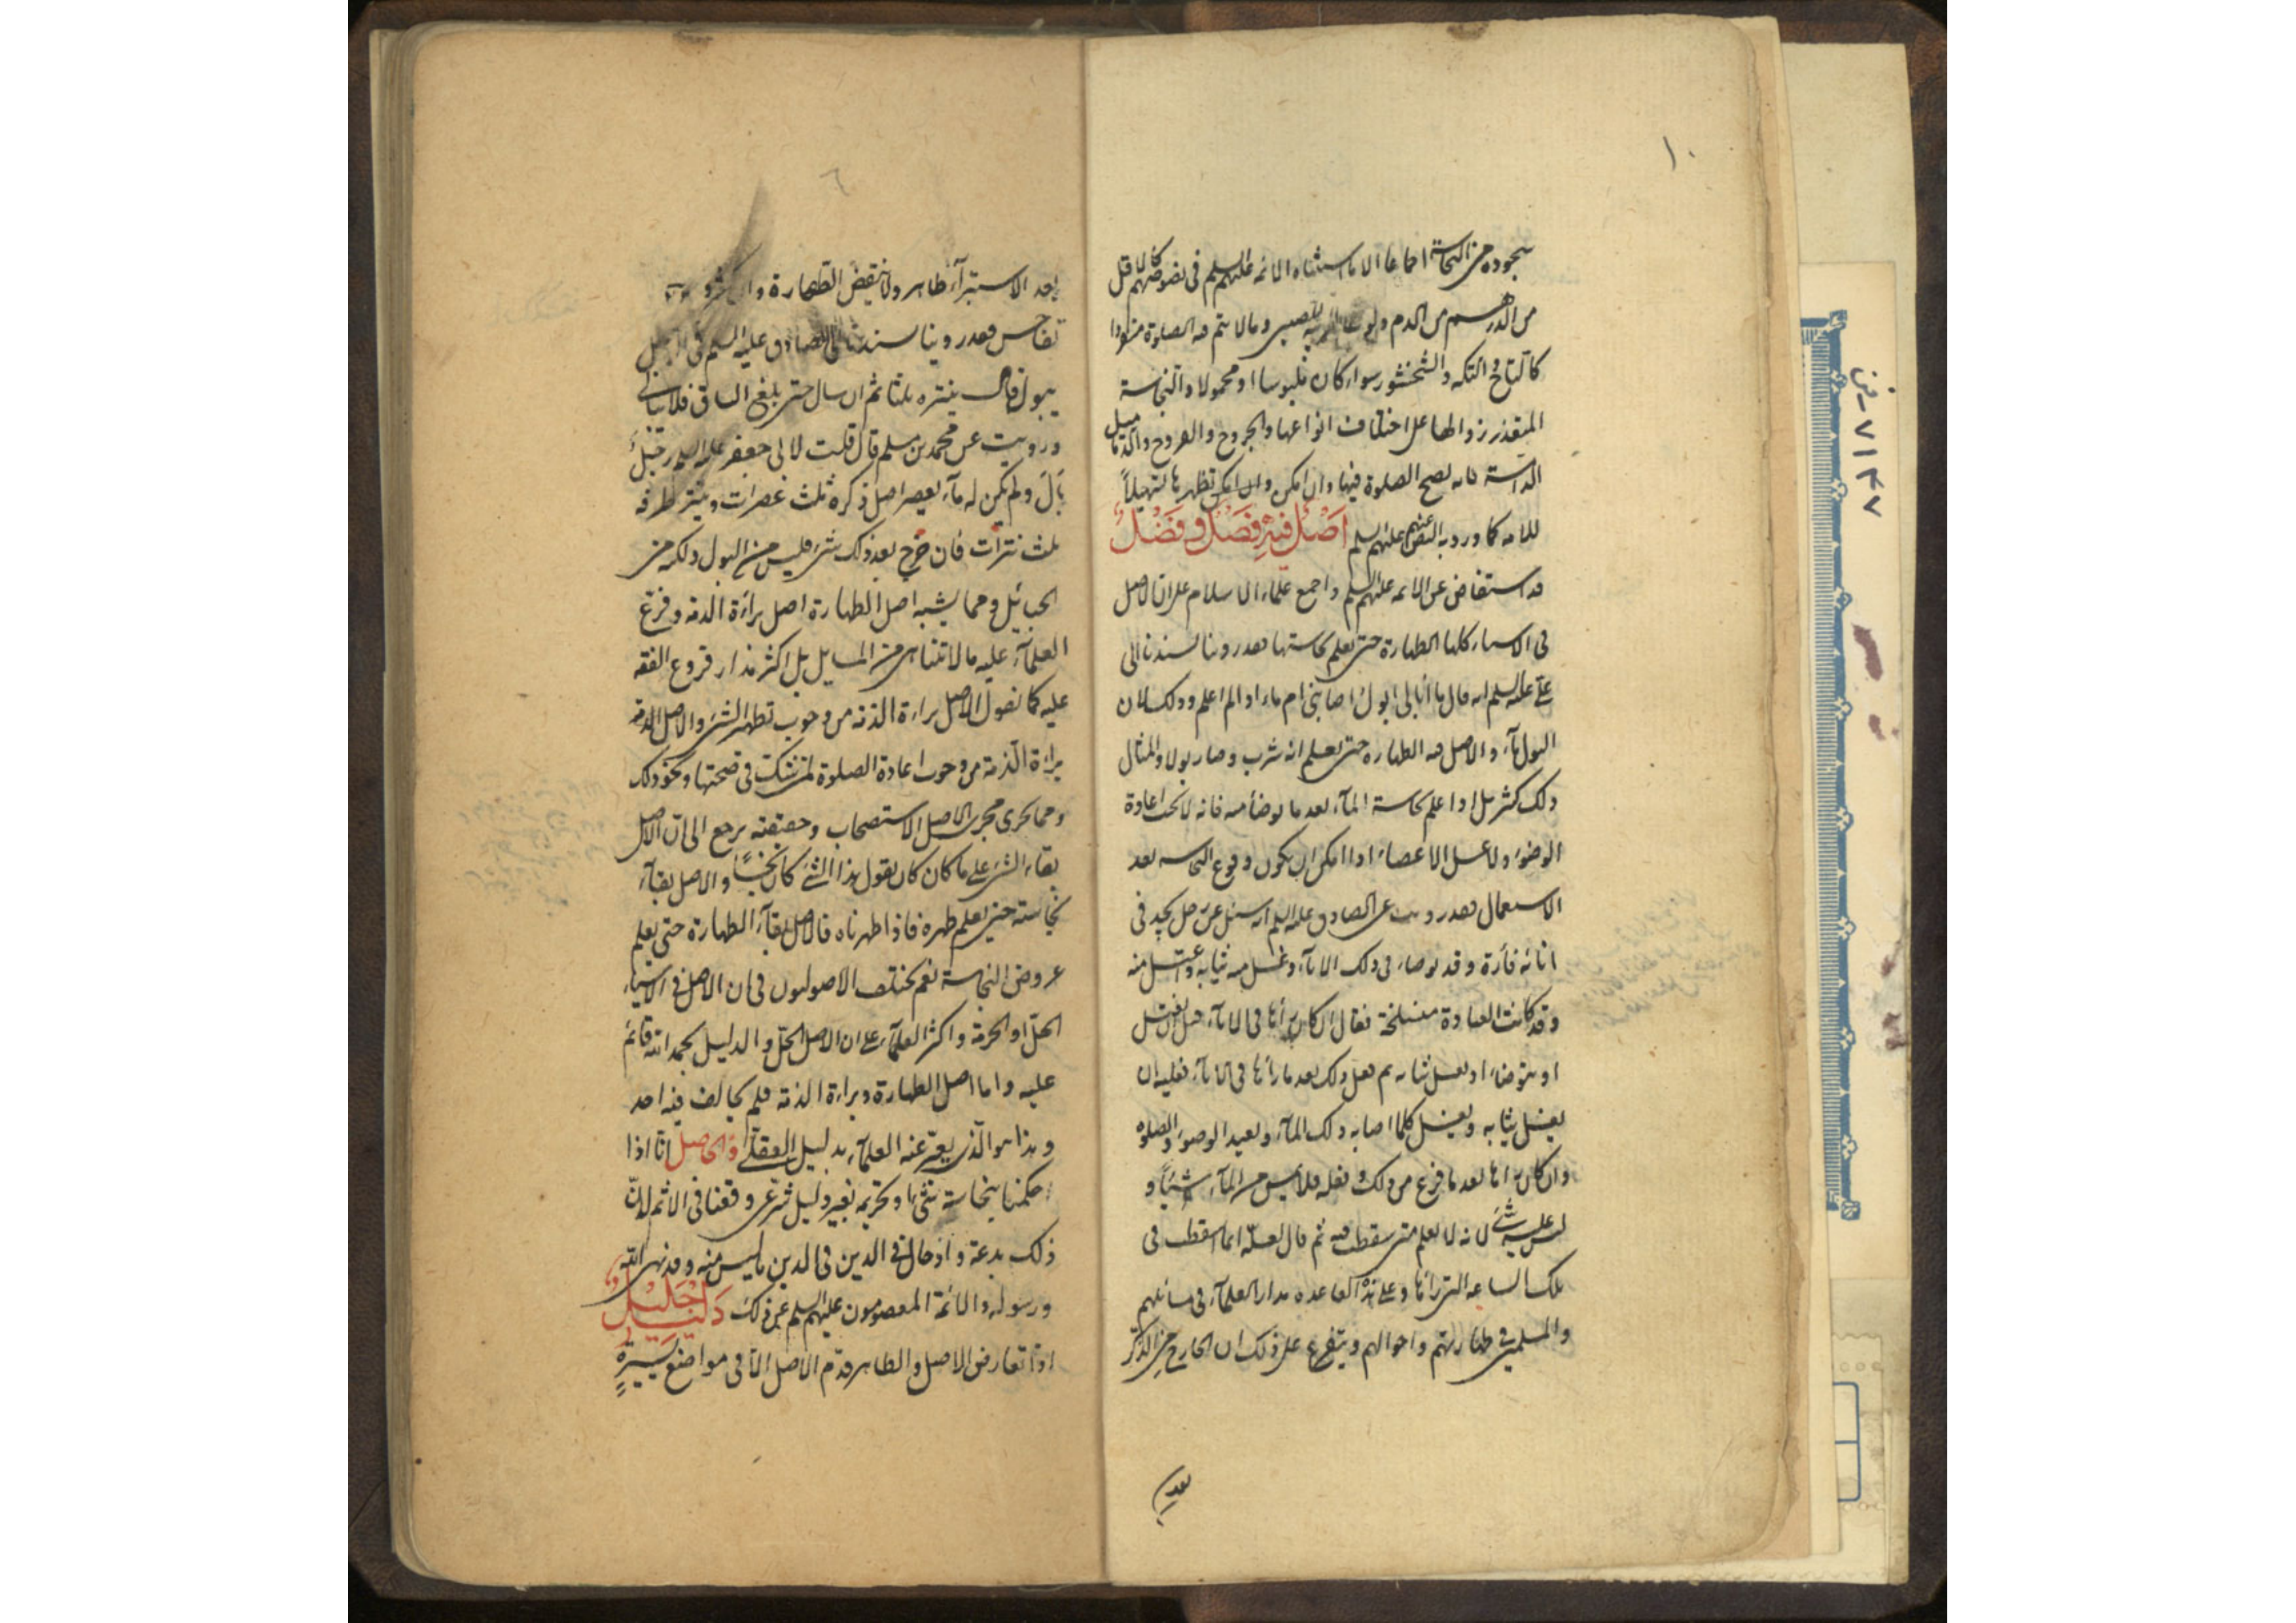 ١٠
سجوده من النجاسة اجماعا الا ما استثناه الائمه عليهم السلم فى نصوصهم كالاقل
من الدرهم من الدم وثوب المربيه للصبى وما لا يتم فيه الصلوة منفردا
كالتاج والتكه والشمشور سواء كان ملبوسا او محمولا والنجاسة
المتعذر زوالها على اختلاف انواعها والجروح والقروح والدماميل
الداميه فانه يصح الصلوة فيها وان امكن تطهيرها تسهيلاً
للامه كما ورد به النص عنهم عليهم السلم اصْل فيهِ فَصْل و فَضْل
قد استفاض عن الائمه عليهم السلم واجمع علماء الاسلام على ان الاصل
فى الاشياء كلها الطهارة حتى يعلم نجاستها فقد روينا بسندنا الى
على عليه السلم انه قال ما أبالى ابول اصابنى ام ماء اذا لم اعلم وذلك لان
البول ماء والاصل فيه الطهاره حتى يعلم انه شرب وصار بولا وامثال
ذلك كثير بل اذا علم نجاسة المآء بعد ما توضأ منه فانه لا تجب اعادة
الوضوء ولا غسل الاعضاء اذا امكن ان يكون وقوع النجاسه بعد
الاستعمال فقد رويت عن الصادق عليه السلم انه سئل عن رجل يجد فى
انائه فأرة وقد توضاء فى ذلك الاناء وغسل منه ثيابه واغتسل منه
وقد كانت الفارة منسلخة فقال ان كان رآها فى الاناء قبل ان يغتسل
او يتوضاء او يغسل ثيابه ثم فعل ذلك بعد ما رآها فى الاناء فعليه ان
يغسل ثيابه ويغسل كلما اصابه ذلك المآء ويعيد الوضوء والصلوه
وان كان رآها بعد ما فرغ من ذلك وفعله فلا يمس من المآء شيئاً و
ليس عليه شئ لانه لا يعلم متى سقطت فيه ثم قال لعله انما سقطت فى
تلك الساعه التى رآها وعلى هذه القاعده مدار العلمآء فى مسائلهم
والمسلمين فى طهارتهم واحوالهم ويتفرع على ذلك ان الخارج من الذكر
بعد
٦
بعد الاستبرآء طاهر ولا ينقض الطهارة وان كثر
تفاحش فقد روينا بسندنا الى الصادق عليه السلم فى الرجل
يبول قال ينتره ثلثا ثم ان سال حتى يبلغ الساق فلا يبالى
ورويت عن محمد بن مسلم قال قلت لابى جعفر عليه السلم رجل
بال ولم يكن له مآء يعصر اصل ذكره ثلث عصرات وينتر طرفه
ثلث نترات فان خرج بعد ذلك شئ فليس من البول ولكنه من
الحبائل ومما يشبه اصل الطهارة اصل براءة الذمه وفرّع
العلمآء عليه ما لا تتناهى من المسايل بل اكثر مدار فروع الفقه
عليه كما نقول الاصل براءة الذمه من وجوب تطهير الشئ والاصل
براءة الذمة من وجوب اعادة الصلوة لمن شك فى صحتها ونحو ذلك
ومما يجرى مجرى الاصل الاستصحاب وحقيقته يرجع الى ان الاصل
بقاء الشئ على ما كان كان يقول هذا الشئ كان نجسًا والاصل بقآء
نجاسته حتى يعلم طهره فاذا طهرناه فالاصل بقآء الطهارة حتى يعلم
عروض النجاسة نعم يختلف الاصوليون فى ان الاصل فى الاشياء
الحلّ او الحرمة واكثر العلمآء على ان الاصل الحل والدليل بحمد الله قائم
عليه واما اصل الطهارة وبراءة الذمه فلم يخالف فيه احد
وهذا هو الّذى يعبّر عنه العلمآء بدليل العقل والحاصل انّا اذا
حكمنا بنجاسة شئ او تحريمه بغير دليل شرعى وقعنا فى الاثم لانّ
ذلك بدعة وادخال فى الدين ما ليس منه وقد نهى الله
ورسوله والائمة المعصومون عليهم السلم عن ذلك دَليلٌ جَليلٌ
اذا تعارض الاصل والظاهر قدّم الاصل الّا فى مواضع يسيرةٍ
٧١٤٧